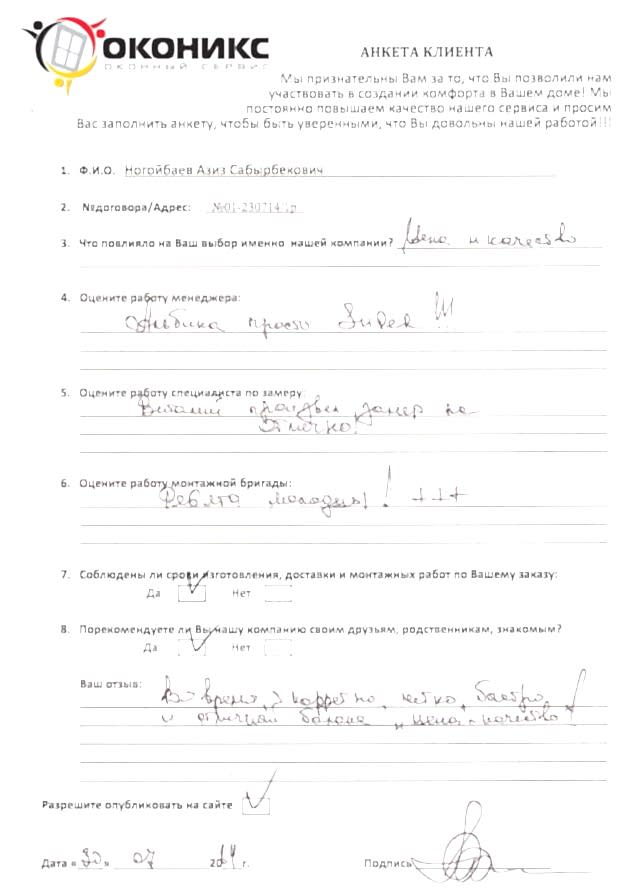 ОКОНИКС
ОКОННЫЙ СЕРВИС
АНКЕТА КЛИЕНТА
Мы признательны Вам за то, что Вы позволили нам
участвовать в создании комфорта в Вашем доме! Мы
постоянно повышаем качество нашего сервиса и просим
Вас заполнить анкету, чтобы быть уверенными, что Вы довольны нашей работой!!!
1. Ф.И.О. Ногойбаев Азиз Сабырбекович
2. №договора/Адрес: №01-230714/1р
3. Что повлияло на Ваш выбор именно нашей компании? Цена и качество
4. Оцените работу менеджера:
Альбина просто Super !!!
5. Оцените работу специалиста по замеру:
Виталий произвел замер на
Отлично!
6. Оцените работу монтажной бригады:
Ребята молодцы! +++
7. Соблюдены ли сроки изготовления, доставки и монтажных работ по Вашему заказу:
Да Нет
8. Порекомендуете ли Вы нашу компанию своим друзьям, родственникам, знакомым?
Да Нет
Ваш отзыв:
Во время, корретно, четко, быстро,
и отличная "цена-качество!
Разрешите опубликовать на сайте
Дата «30» 07 2014 г. Подпись